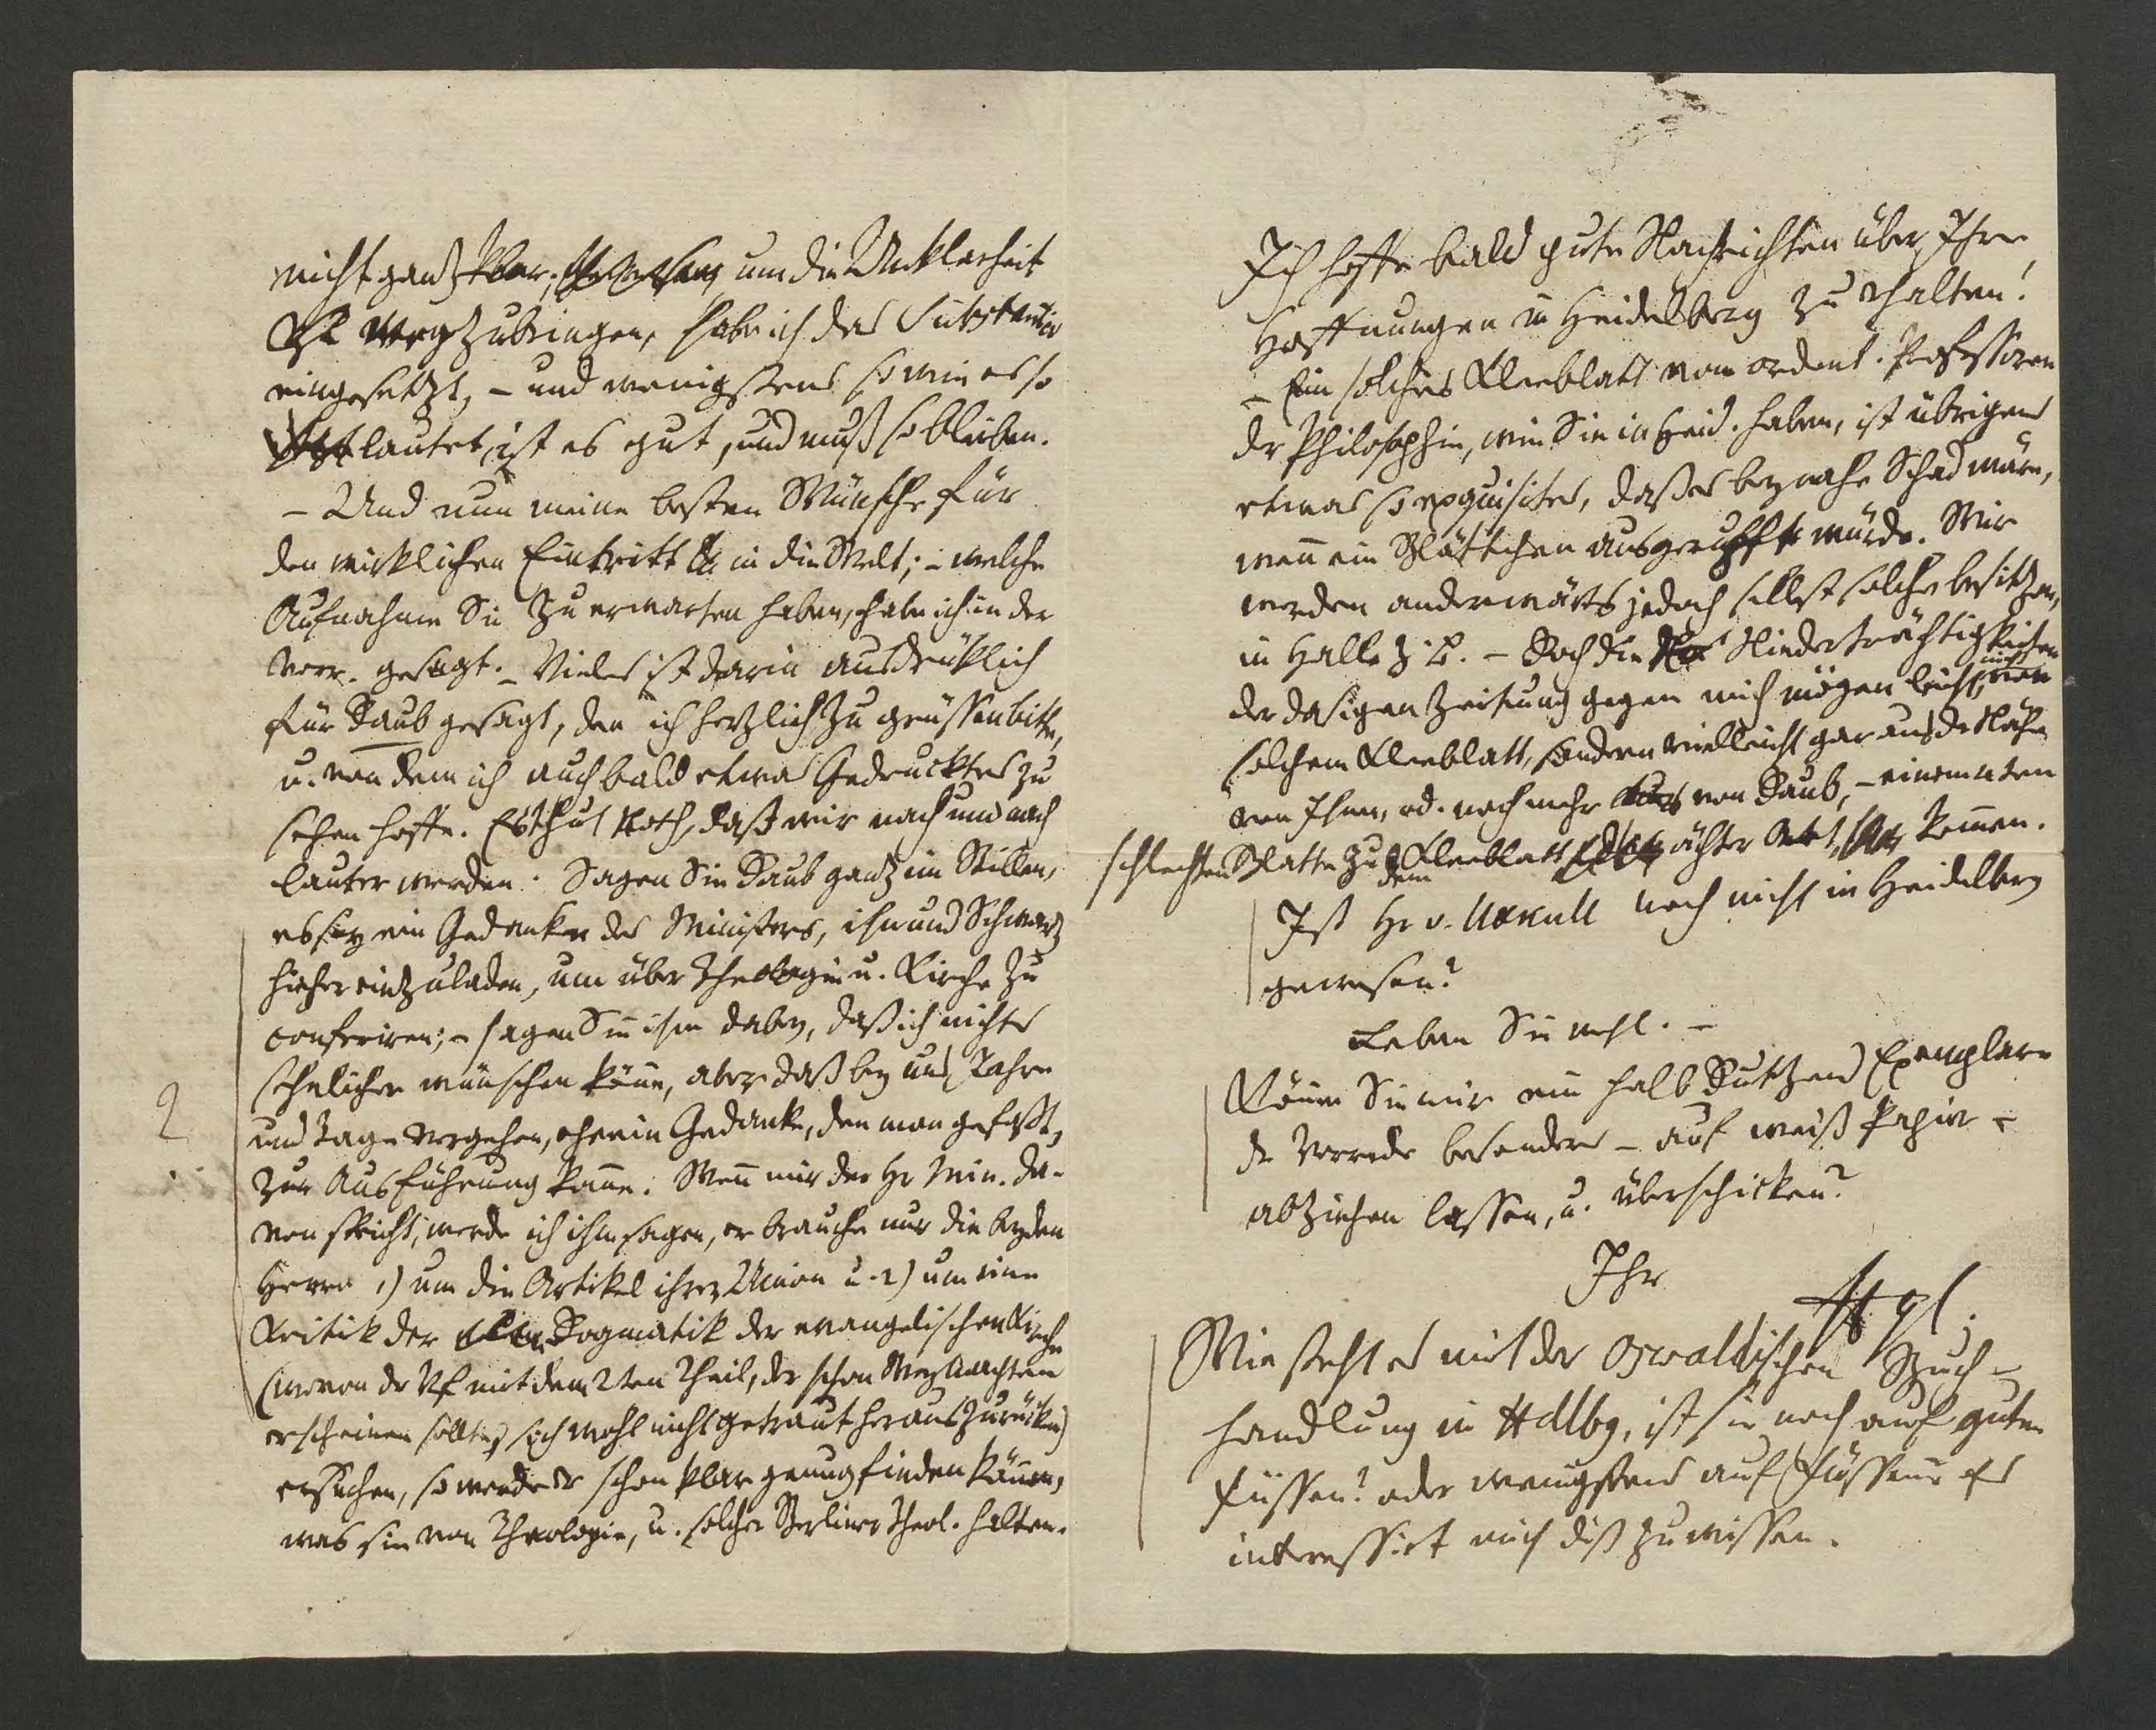 nicht ganz klar; um die Unklarheit
wegzubringen, habe ich das Substantiv
eingesetzt, – und wenigstens so wie es so
lautet, ist es gut, und muß so bleiben.
– Und nun meine besten Wünsche für
den wirklichen Eintritt in die Welt; – welche
Aufnahme Sie zu erwarten haben, habe ich in der
Vorr. gesagt. – Vieles ist darin ausdrüklich
für Daub gesagt, den ich herzlich zu grüssen bitte,
u. von dem ich auch bald etwas Gedrucktes zu
sehen hoffe. Es thut Noth, daß wir nach und nach
lauter werden. Sagen Sie Daub ganz im Stillen,
es sey ein Gedanken des Ministers, ihn und Schwarz
hieher einzuladen, um über Theologie u. Kirche zu
conferiren; – sagen Sie ihm dabey, daß ich nichts
sehnlicher wünschen könne, aber daß bey uns Jahre
und Tage vergehen, ehe ein Gedanke, den man gefaßt,
zur Ausführung komme. Wenn mir der Hr Min. da-
von spricht, werde ich ihm sagen, er brauche nur die beyden
Herrn 1) um die Artikel ihrer Union u. 2) um eine
Kritik der Dogmatik der evangelischen Kirche
(wovon der Vf mit dem 2ten Theil, der schon Weyhnachten
erscheinen sollte, sich wohl nicht getraut herauszurücken)
ersuchen, so werde er schon klar genug finden können,
was sie von Theologie, u. solcher Berliner Theol. halten.
2
Ich hoffe bald gute Nachrichten über Ihre
Hoffnungen in Heidelberg zu erhalten!
– Ein solches Kleeblatt von ordent. Professoren
der Philosophie, wie Sie in Heid. haben, ist übrigens
etwas so exquisites, daß es beynahe Schad wäre,
wenn ein Blättchen ausgerupft würde. Wir
werden anderwärts jedoch selbst solche besitzen,
in Halle z. B. – Doch die Niederträchtigkeiten
der dasigen Zeitung gegen mich mögen leicht nicht von
solchem Kleeblatt, sondern vielleicht gar aus der Nähe
von Ihnen, od. noch mehr von Daub, – einem uten
schlechten Blatte zu dem Kleeblatt ächter Art, kommen.
Ist Hr v. Uxkull noch nicht in Heidelberg
gewesen?
Leben Sie wohl. –
Können Sie mir ein halb Dutzend Exemplare
der Vorrede besonders – auf weiß Papier –
abziehen lassen, u. überschicken?
Ihr
Hgl.
Wie steht es mit der Oswaldischen Buch-
handlung in Hdlbg, ist sie noch auf guten
Füssen? oder wenigstens auf Füssen? es
interessirt mich diß zu wissen.